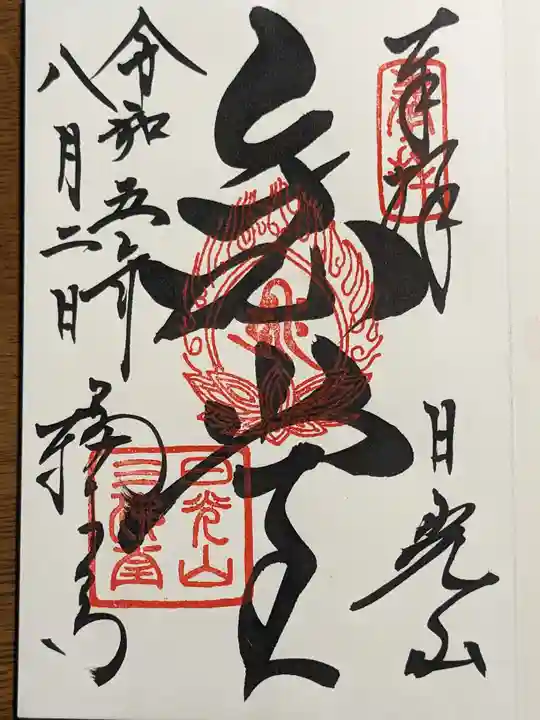 奉拝
日光山
金堂
日光山
三佛堂
令和五年
八月二日
輪王寺